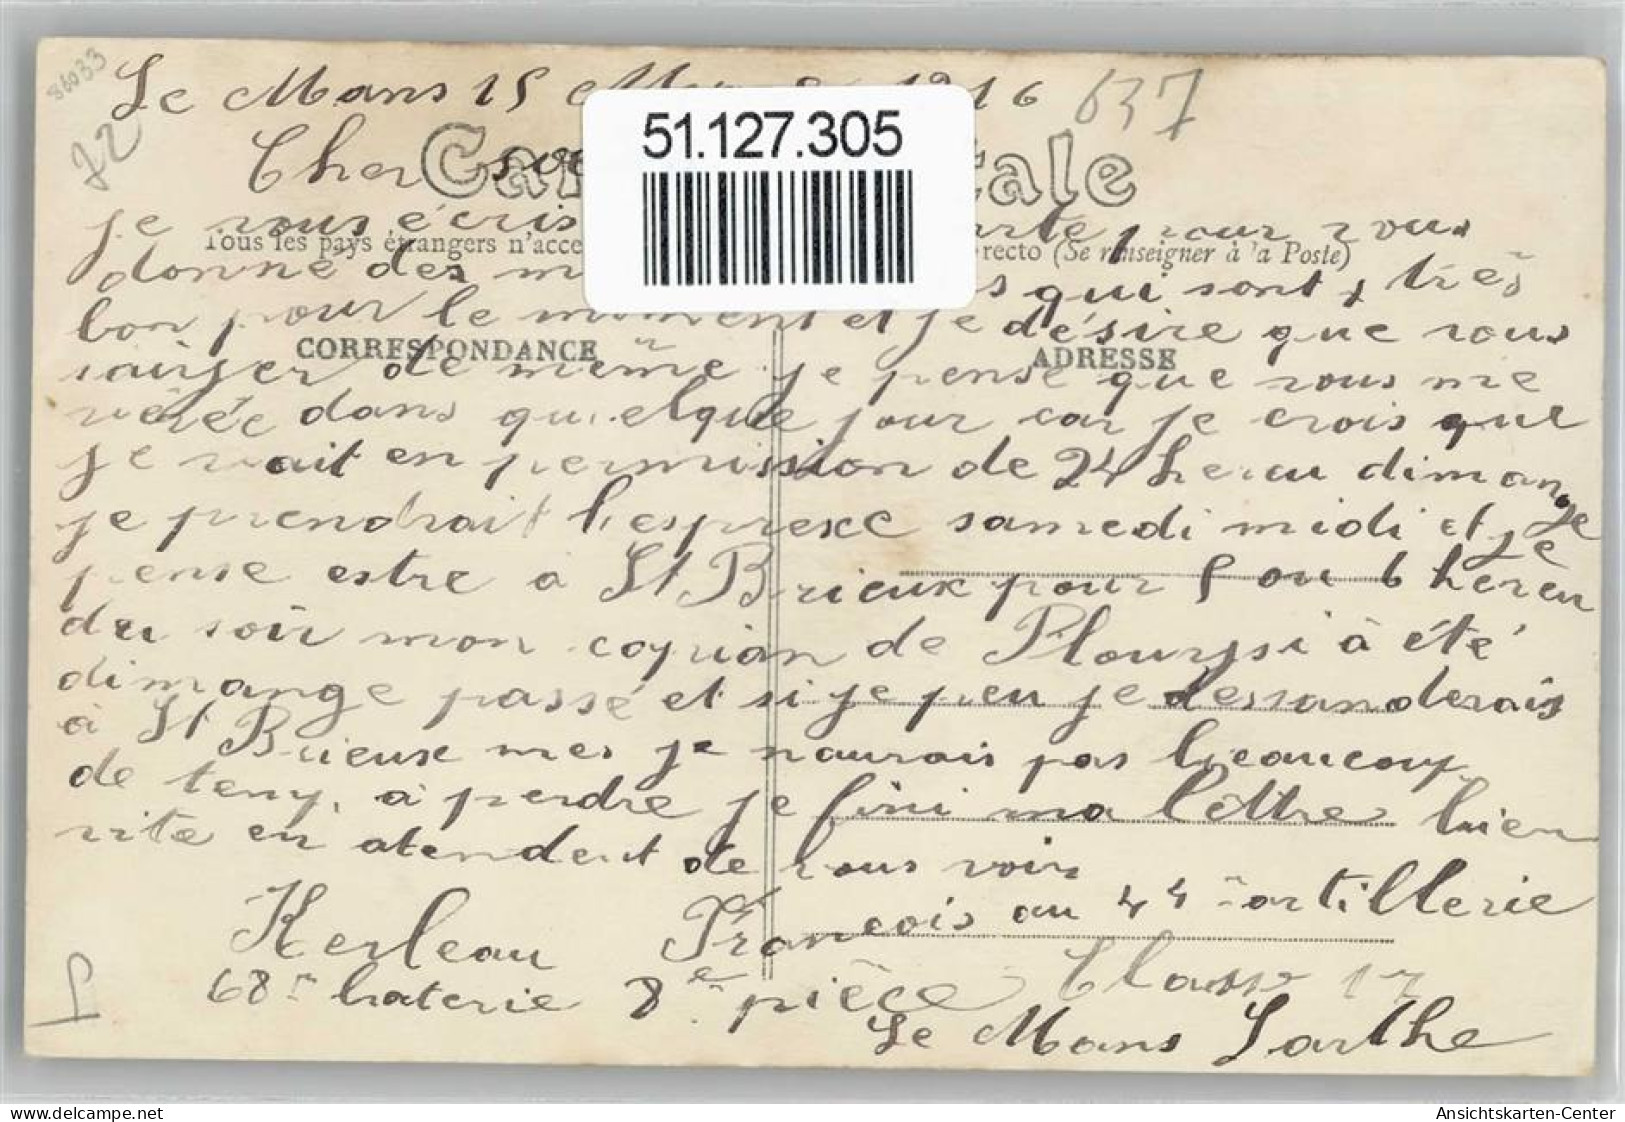 86033
637
72
Le Mans 15 1916
Cher
51.127.305
Car tale
je vous écris carte pour vous
Tous les pays étrangers n'acce recto (Se renseigner à la Poste)
donne des qui sont très
bon pour le moment et je désire que vous
CORRESPONDANCE ADRESSE
de même je pense que vous me
dans quelque jour car je crois que
je vait en permission de 24 hereu dimange
je prendrait l'esprexe samedi midi et je
pense estre a St Brieux pour 5 ou 6 hereu
du soir mon copian de Plourysi à été
dimange passé et si je peu je dessanderais
à St Brieux mes je naurais pas beaucoup
de temp, a perdre je fini ma lèttre bien
vite en atendent de vous voir
Kerleau François au 44e artillerie
68e baterie 8e pièce Classe 17
Le Mans Sarthe
oldthing.com
Ansichtskarten-Center